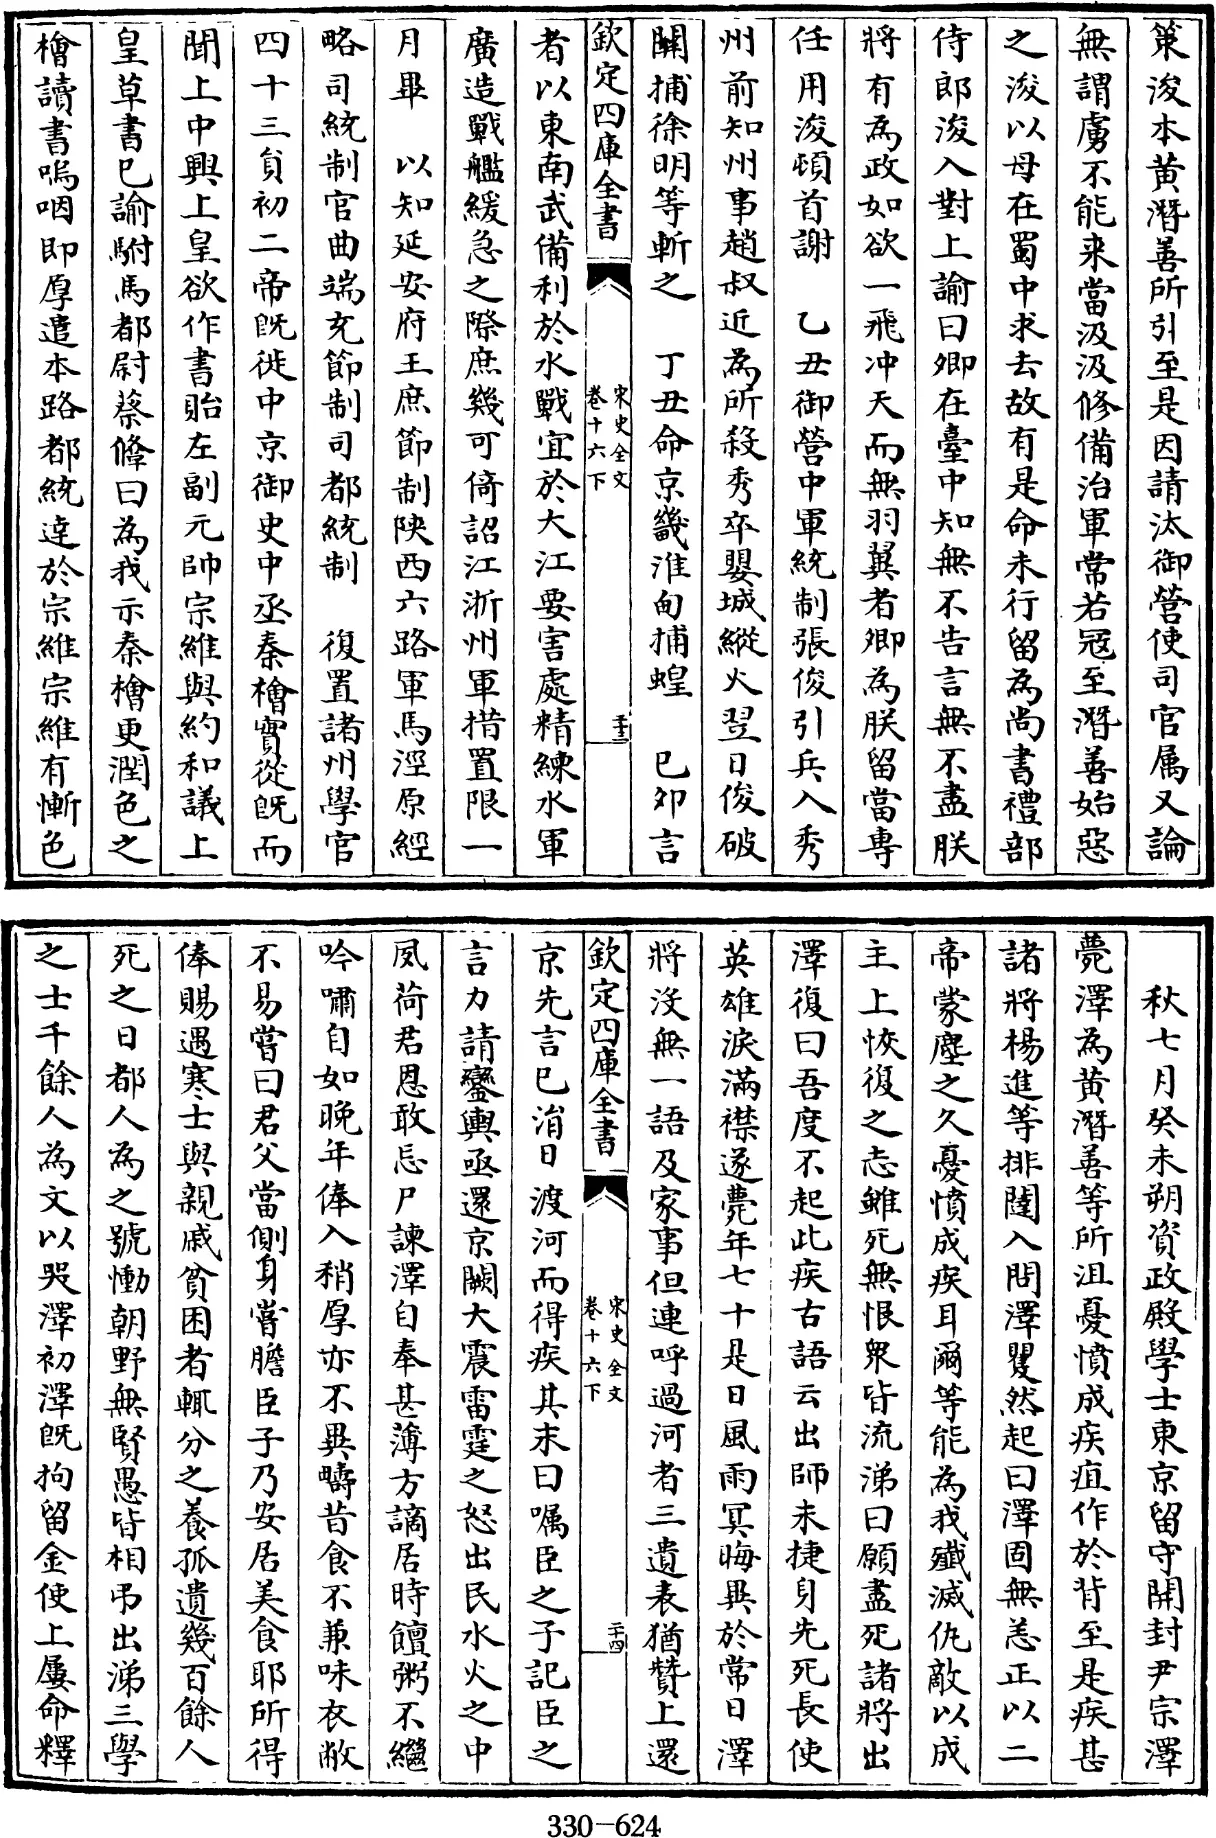 策浚本黄潛善所引至是因請汰御營使司官属又論
無謂虜不能来當汲汲修備治軍常若冦至潛善始惡
之浚以母在蜀中求去故有是命未行留為尚書禮部
侍郎浚入對上諭曰卿在臺中知無不告言無不盡朕
將有為政如欲一飛冲天而無羽翼者卿為朕留當專
任用浚頓首謝　乙丑御營中軍統制張俊引兵入秀
州前知州事趙叔近為所殺秀卒嬰城縱火翌日俊破
關捕徐明等斬之　丁丑命京畿淮甸捕蝗　巳夘言
欽定四庫全書
宋史全文
卷十六下
二十三
者以東南武備利於水戰宜於大江要害處精練水軍
廣造戰艦緩急之際庶幾可倚詔江浙州軍措置限一
月畢　以知延安府王庶節制陜西六路軍馬涇原經
略司統制官曲端充節制司都統制　復置諸州學官
四十三員初二帝旣徙中京御史中丞秦檜實從旣而
聞上中興上皇欲作書貽左副元帥宗維與約和議上
皇草書巳諭駙馬都尉蔡鞗曰為我示秦檜更潤色之
檜讀書嗚咽即厚遣本路都統達於宗維宗維有慚色
秋七月癸未朔資政殿學士東京留守開封尹宗澤
薨澤為黄潛善等所沮憂憤成疾疽作於背至是疾甚
諸將楊進等排闥入問澤矍然起曰澤固無恙正以二
帝蒙塵之久憂憤成疾耳爾等能為我殲滅仇敵以成
主上恢復之志雖死無恨衆皆流涕曰願盡死諸將出
澤復曰吾度不起此疾古語云出師未捷身先死長使
英雄淚滿襟遂薨年七十是日風雨冥晦異於常日澤
將沒無一語及家事但連呼過河者三遺表猶贊上還
欽定四庫全書
宋史全文
卷十六下
二十四
京先言巳涓日渡河而得疾其末曰囑臣之子記臣之
言力請鑾輿亟還京闕大震雷霆之怒出民水火之中
夙荷君恩敢忘尸諫澤自奉甚薄方謫居時饘粥不繼
吟嘯自如晚年俸入稍厚亦不異疇昔食不兼味衣敝
不易嘗曰君父當側身嘗膽臣子乃安居美食耶所得
俸賜遇寒士與親戚貧困者輒分之養孤遺幾百餘人
死之日都人為之號慟朝野無賢愚皆相弔出涕三學
之士千餘人為文以哭澤初澤旣拘留金使上屢命釋
330-624